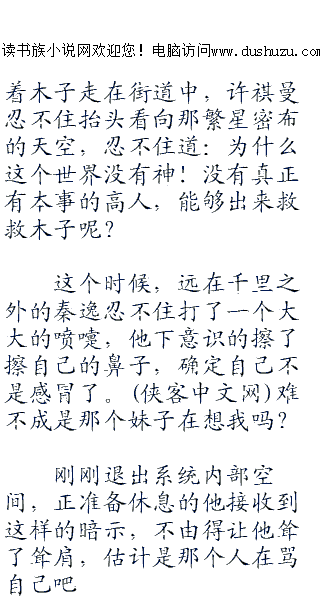 读书族小说网欢迎您！电脑访问www.dushuzu.com
着木子走在街道中，许祺曼
忍不住抬头看向那繁星密布
的天空，忍不住道：为什么
这个世界没有神！没有真正
有本事的高人，能够出来救
救木子呢？
这个时候，远在千里之
外的秦逸忍不住打了一个大
大的喷嚏，他下意识的擦了
擦自己的鼻子，确定自己不
是感冒了。(侠客中文网)难
不成是那个妹子在想我吗？
刚刚退出系统内部空
间，正准备休息的他接收到
这样的暗示，不由得让他耸
了耸肩，估计是那个人在骂
自己吧